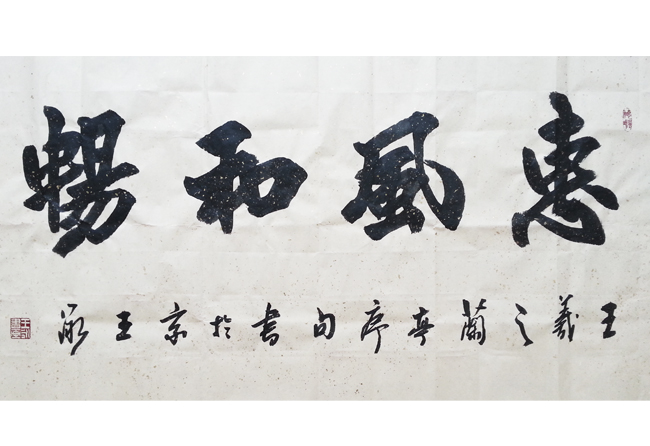 惠風和暢
王羲之蘭亭序句書於京王